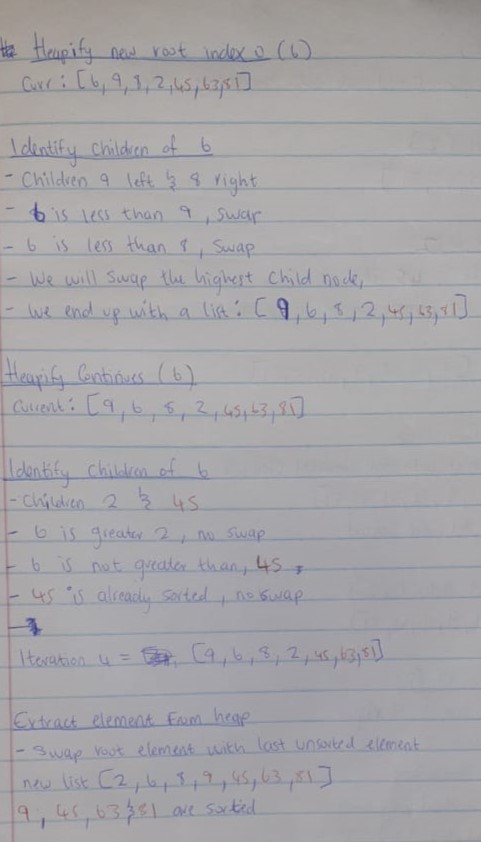 Heapify new root index 0 (6)
Curr: [6, 9, 8, 2, 45, 63, 81]
Identify children of 6
- Children 9 left & 8 right
- 6 is less than 9, swap
- 6 is less than 8, swap
- We will swap the highest child node,
- We end up with a list: [9, 6, 8, 2, 45, 63, 81]
Heapify Continues (6)
Current: [9, 6, 8, 2, 45, 63, 81]
Identify children of 6
- Children 2 & 45
- 6 is greater 2, no swap
- 6 is not greater than, 45,
- 45 is already sorted, no swap
Iteration 4 = [9, 6, 8, 2, 45, 63, 81]
Extract element from heap
- Swap root element with last unsorted element
new list [2, 6, 8, 9, 45, 63, 81]
9, 45, 63 & 81 are sorted